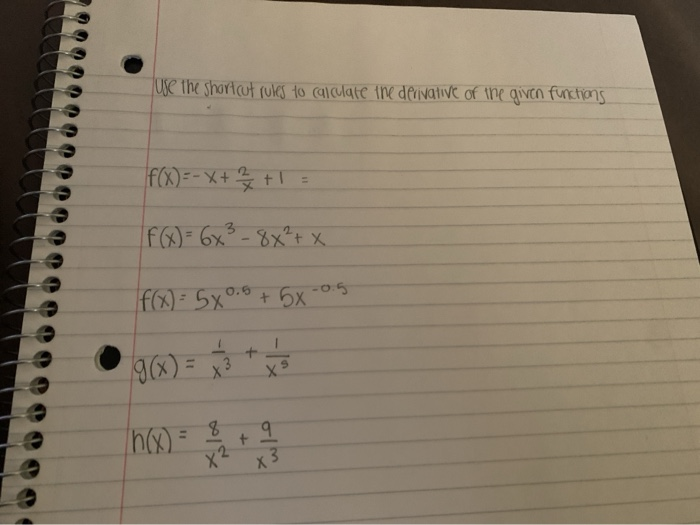 use the shortcut rules to calculate the derivative of the given functions
f(x) = -x + 2/x + 1 =
f(x) = 6x³ - 8x² + x
f(x) = 5x^0.5 + 5x^-0.5
g(x) = 1/x³ + 1/x⁵
h(x) = 8/x² + 9/x³